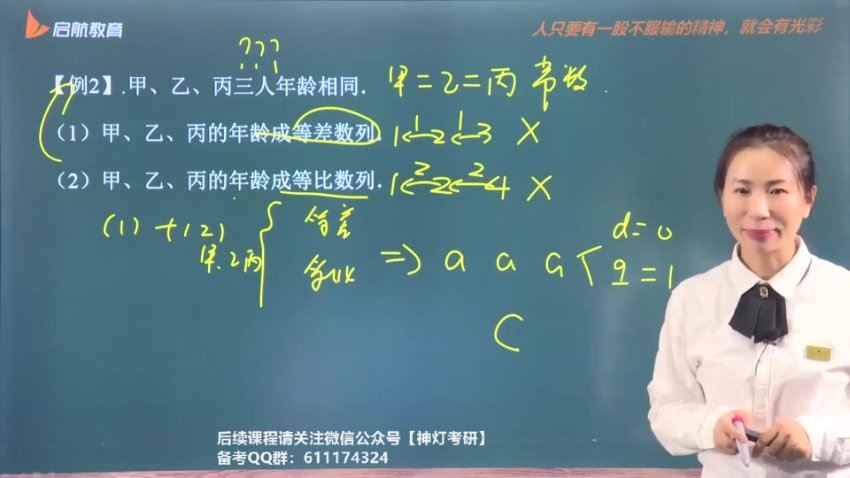 启航教育
人只要有一股不服输的精神，就会有光彩
? ? ?
【例2】.甲、乙、丙三人年龄相同. 甲=乙=丙 常数.
（1）甲、乙、丙的年龄成等差数列. 1 1 2 1 3 X
（2）甲、乙、丙的年龄成等比数列. 1 2 2 2 4 X
(1)+(2) 甲.乙丙 { 等差 等比 => a a a d=0 q=1
C
后续课程请关注微信公众号【神灯考研】
备考QQ群：611174324